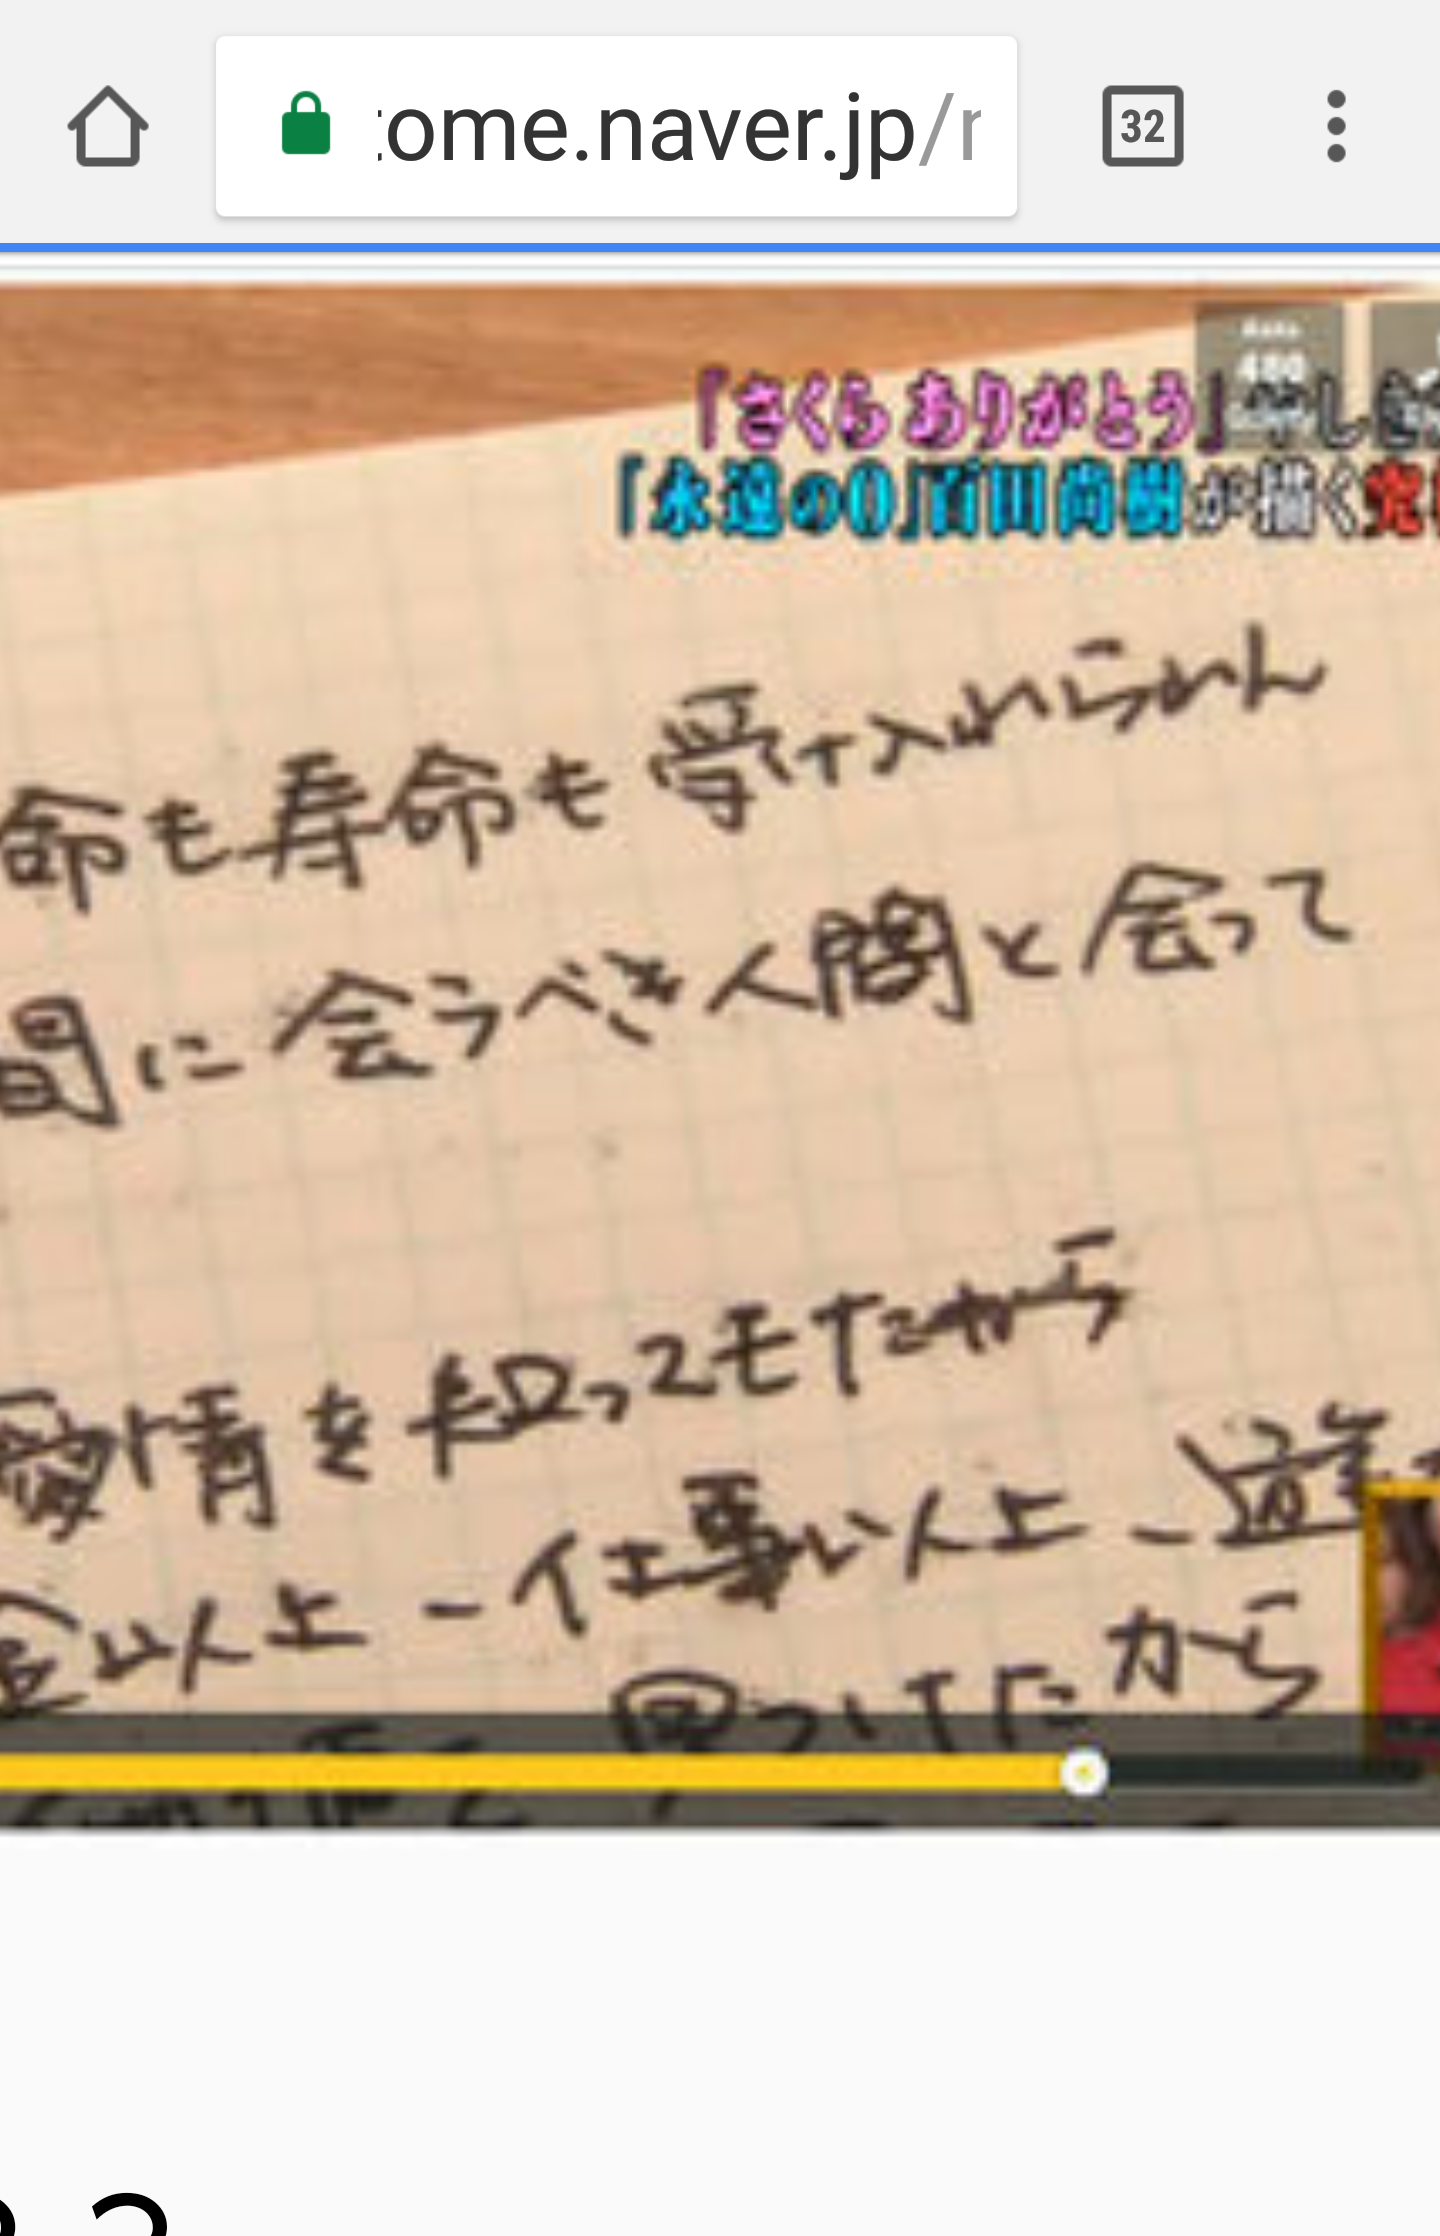 ome.naver.jp/r
32
480
『さくら ありがとう』
「永遠の0」百田尚樹が描く究
命も寿命も受け入れられん
間に会うべき人間と会って
愛情を知ってモたから
金以上-仕事以上-遊
見つけたから